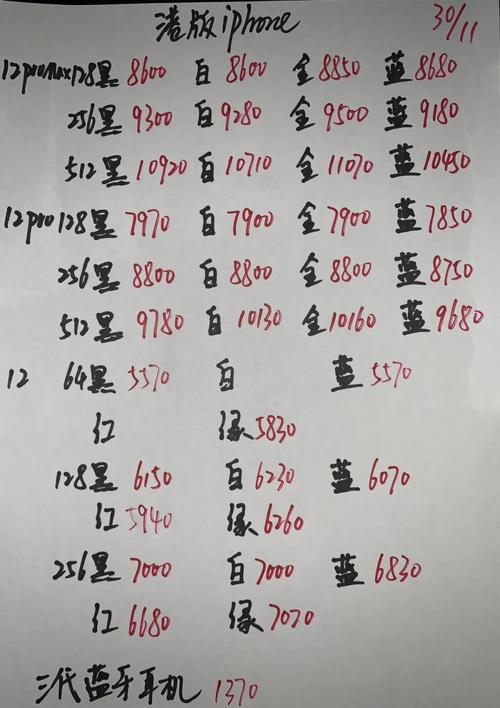 港版iphone 30/11
12promax128黑8600 白8600 金8850 蓝8680
256黑9300 白9280 金9500 蓝9180
512黑10920 白10710 金11070 蓝10450
12pro128黑7970 白7900 金7900 蓝7850
256黑8800 白8800 金8800 蓝8750
512黑9780 白10130 金10160 蓝9680
12 64黑5570 白 蓝5570
红 绿5830
128黑6150 白6230 蓝6070
红5940 绿6260
256黑7000 白7000 蓝6830
红6680 绿7070
三代蓝牙耳机 1370